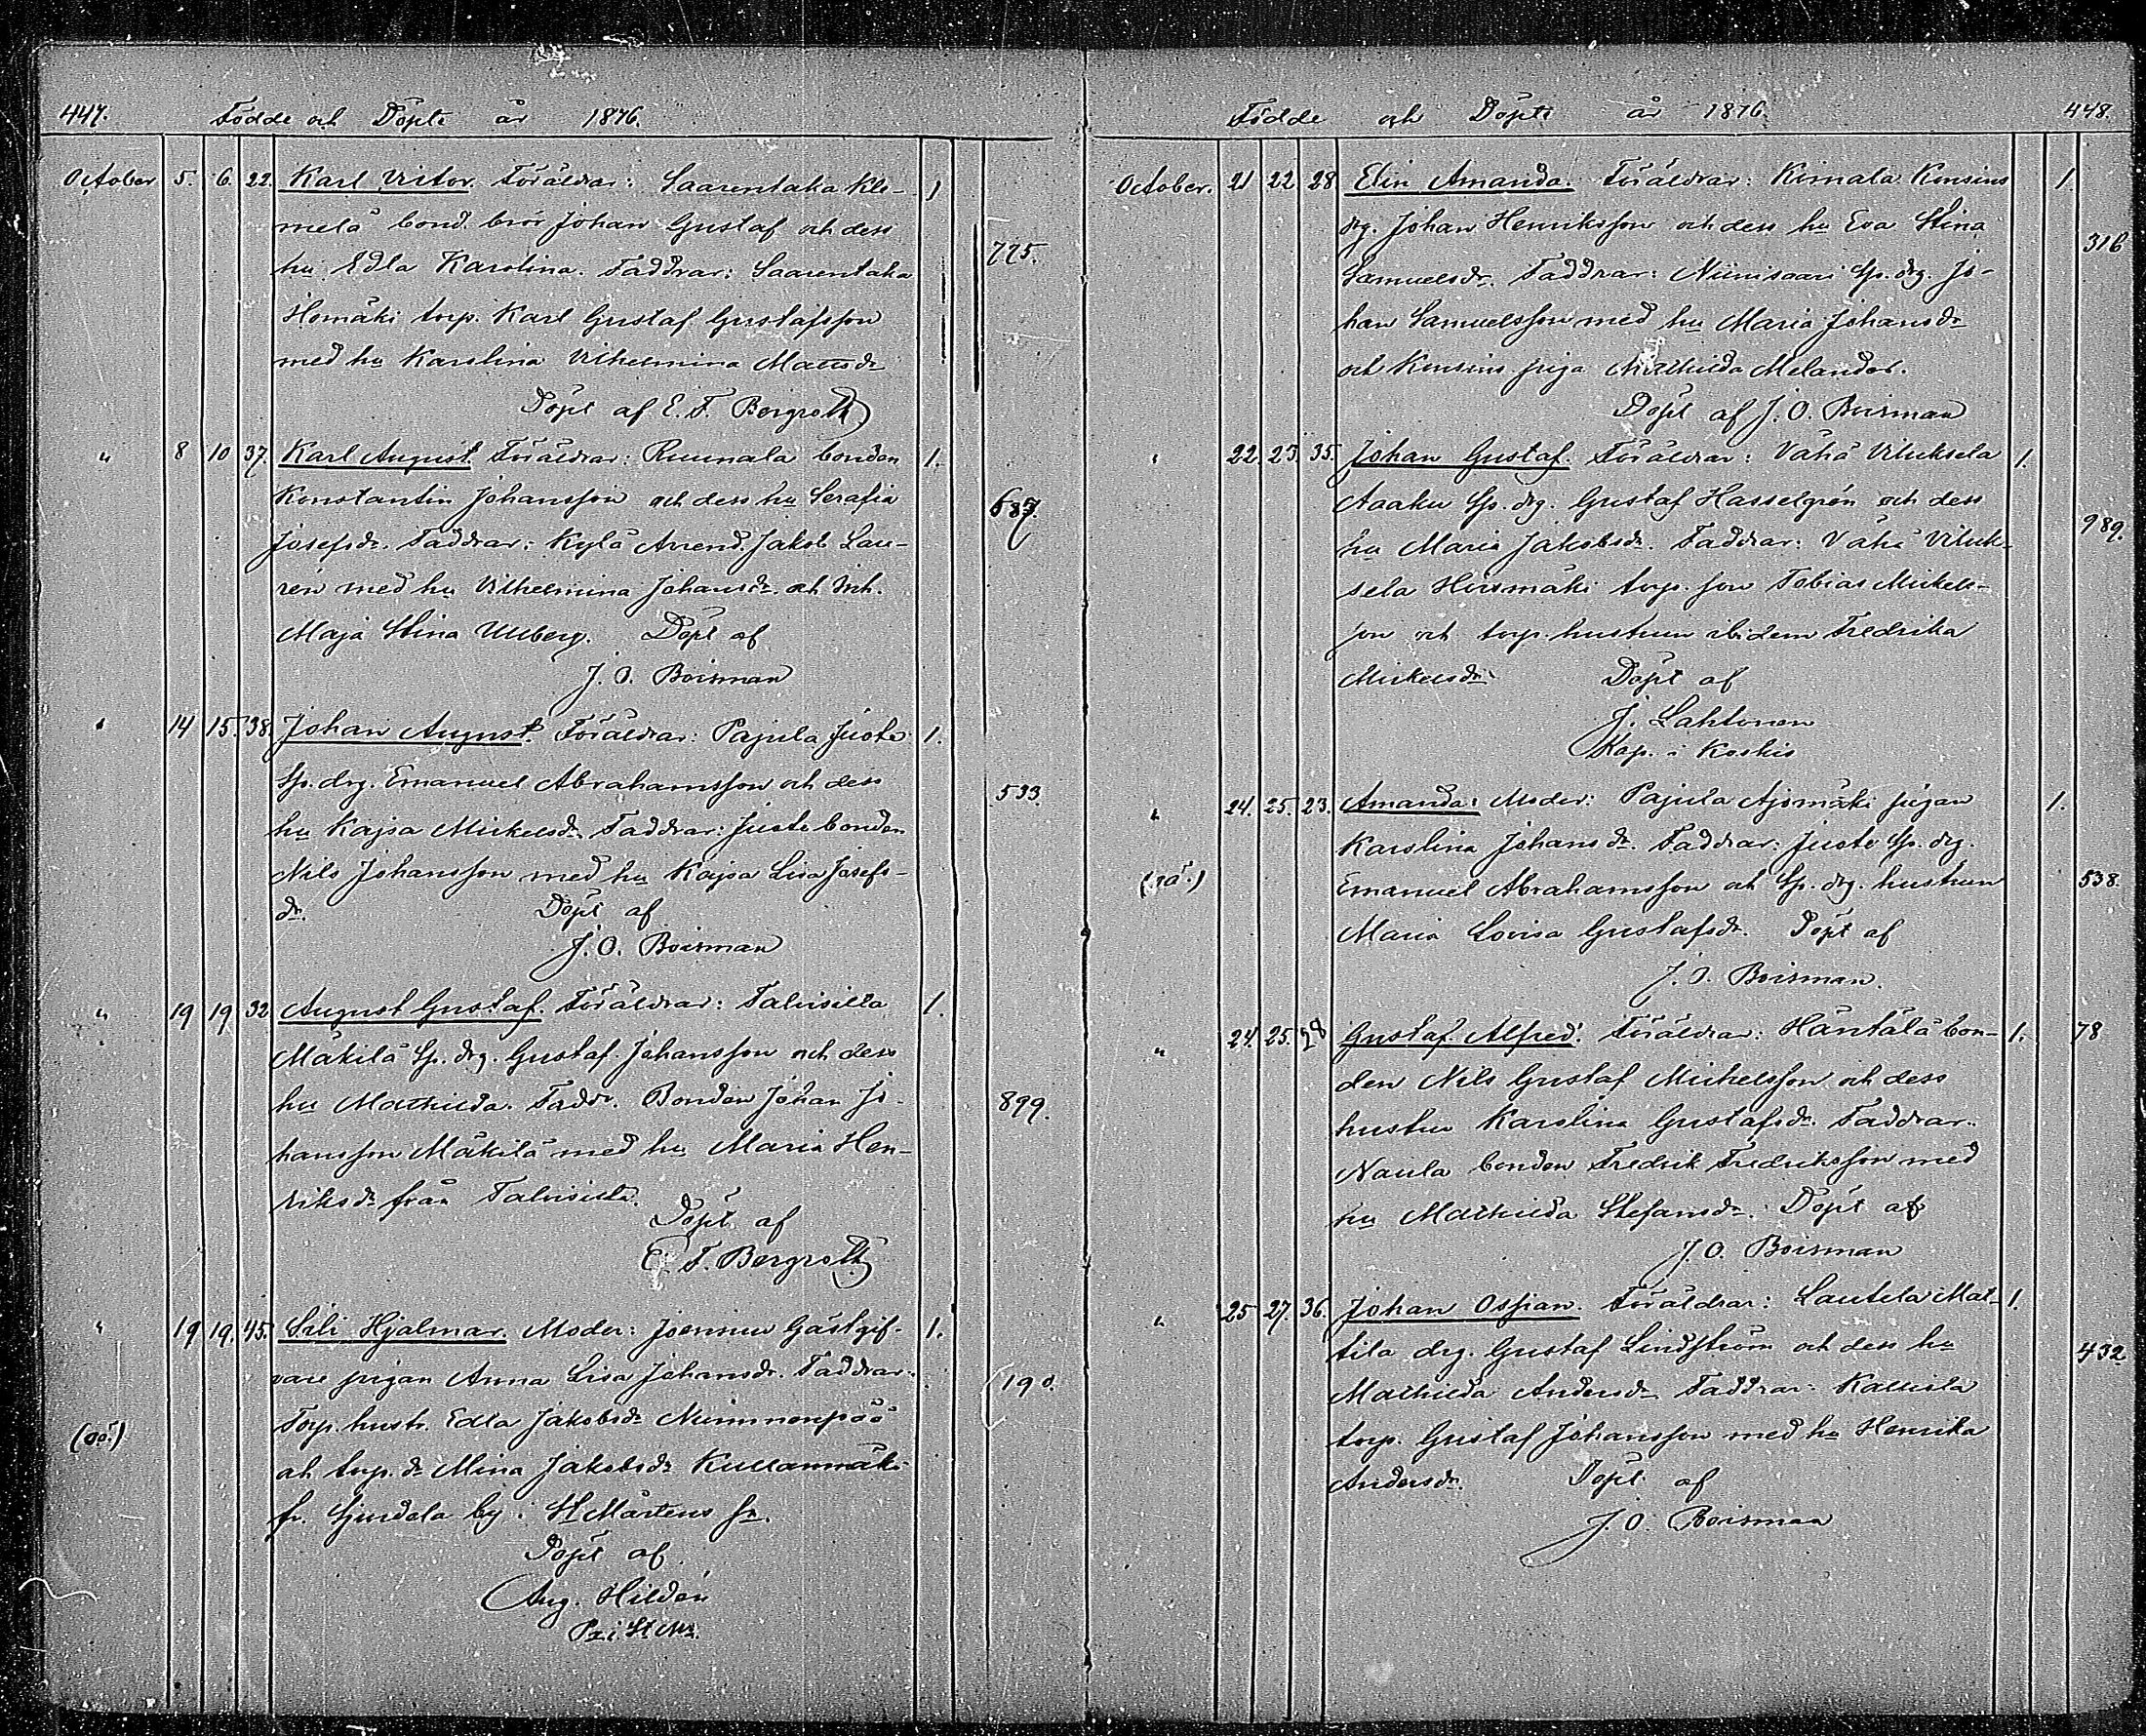 447. Födde och Döpte år 1876.
October 5. 6. 22. Karl Victor. Föräldrar: Saarentaka Kle- 1
melä bond. bror Johan Gustaf och dess
hu Edla Karolina. Faddrar: Saarentaka 775.
Homäki torp. Karl Gustaf Gustafsson
med hu Karolina Vilhelmina Mattsdr
Döpt af E. F. Bergroth
" 8 10 37. Karl August. Föräldrar: Ruunala bonden 1.
Konstantin Johansson och dess hu Serafia 687.
Josefsdr. Faddrar: Kylä Arrend. Jakob Lau-
ren med hu Vilhelmina Johansdr. och Inh.
Maja Stina Ullberg. Döpt af
J. O. Boisman
" 14 15. 38. Johan August. Föräldrar: Pajula Juote 1.
Sp. drg. Emanuel Abrahamsson och dess 533.
hu Kajsa Mickelsdr. Faddrar: Juote bonden
Nils Johansson med hu Kajsa Lisa Josefs-
dr. Döpt af
J. O. Boisman
" 19 19 32 August Gustaf. Föräldrar: Talvisilta 1.
Mäkilä Sp. drg. Gustaf Johansson och dess
hu Mathilda. Faddr. Bonden Johan Jo- 899.
hansson Mäkilä med hu Maria Hen-
riksdr från Talvisilta.
Döpt af
E. F. Bergroth
" 19 19. 45. Sili Hjalmar. Moder: Joensuu Gästgif- 1.
vare pigan Anna Lisa Johansdr. Faddrar: 190.
Torp. hustr. Edla Jakobsdr Nummenpää
(oä.) och torp. dr Mina Jakobsdr Kullanmäki
fr. Sjurdala by i St Mårtens sn.
Döpt af
Aug. Hildén
Pr. i St Ms.
Födde och Döpte år 1876. 448.
October. 21 22 28 Elin Amanda. Föräldrar: Kimala Konsins 1.
drg. Johan Henriksson och dess hu Eva Stina 316
Samuelsdr. Faddrar: Niinisaari Sp. drg. Jo-
han Samuelsson med hu Maria Johansdr
och Konsins piga Mathilda Melander.
Döpt af J. O. Boisman
" 22 23. 35. Johan Gustaf. Föräldrar: Vähä Viluksela 1.
Aaaku Sp. drg. Gustaf Hasselgrén och dess 989.
hu Maria Jakobsdr. Faddrar: Vähä Viluk-
sela Hirsmäki torp. son Tobias Mickels-
son och torp. hustrun ibidem Fredrika
Mickelsdr. Döpt af
J. Lahtonen
Kap. i Koskis
" 24. 25. 23. Amanda: Moder: Pajula Ajomäki pigan 1.
Karolina Johansdr. Faddrar: Juote Sp. drg.
(oä.) Emanuel Abrahamsson och Sp. drg. hustrun 538.
Maria Lovisa Gustafsdr. Döpt af
J. O. Boisman.
" 24. 25. 28 Gustaf Alfred. Föräldrar: Häntälä bon- 1. 78
den Nils Gustaf Mickelsson och dess
hustru Karolina Gustafsdr. Faddrar.
Naula bonden Fredrik Fredriksson med
hu Mathilda Stefansdr. Döpt af
J. O. Boisman
" 25 27. 36. Johan Ossian. Föräldrar: Lautela Mat- 1.
tila drg. Gustaf Lindström och dess hu 432
Mathilda Andersdr Faddrar: Kattiela
torp. Gustaf Johansson med hu Henrika
Andersdr. Döpt af
J. O. Boisman